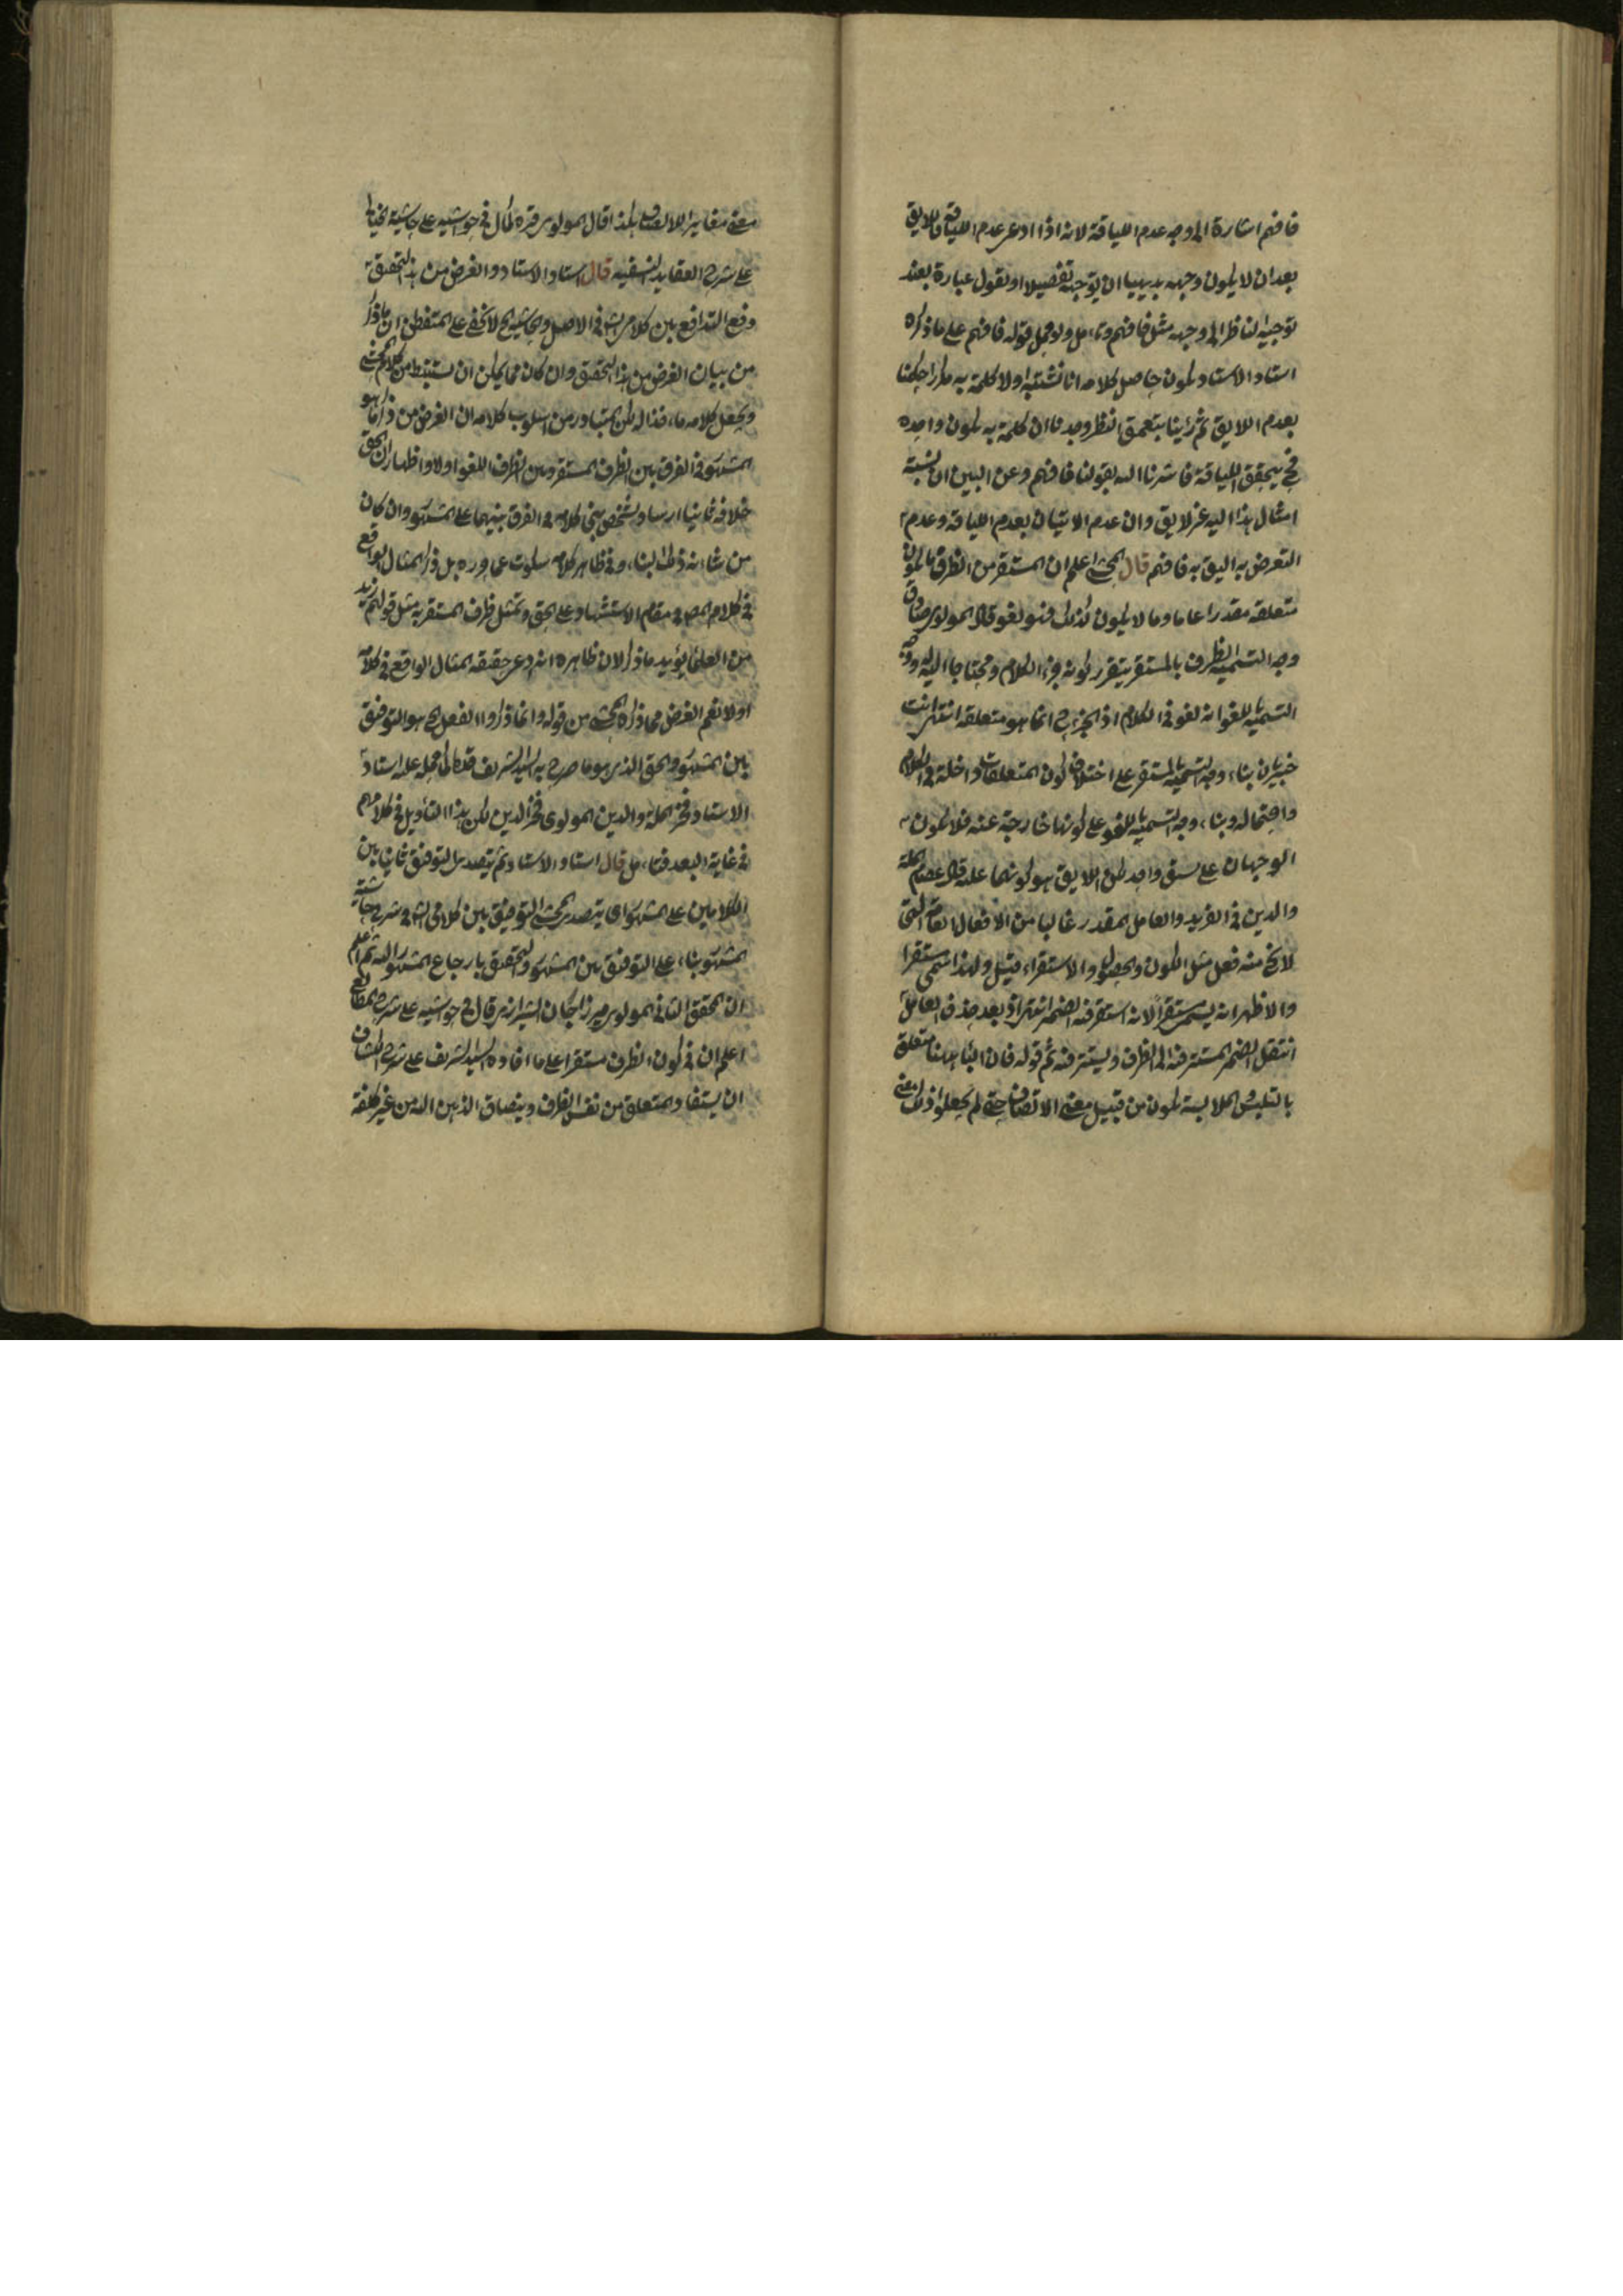 فافهم اشارة الى وجه عدم اللياقة لانه اذا ادعى عدم اللياقة
بعد ان لا يكون وجهه بديهيا ان يوجه تفصيلا او نقول عبارة بعد
توجيه الناظر الى وجهه مثل فافهم وتامل ولو حمل قوله فافهم على ما ذكره
استاد الاستاد يكون حاصل كلامه انا اولا كلمة به
بعدم اللايق ثم راينا بتعمق النظر وجدنا ان كلمة به يكون واجده
فح يحقق اللياقة فاشرنا اليه بقولنا فافهم وعن البين ان نسبة
امثال هذا اليه غير لايق وان عدم الاتيان بعدم اللياقة وعدم
التعرض به اليق به فافهم قال المحشى اعلم ان المستقر من الظرف ما يكون
متعلقه مقدرا عاما وما لا يكون كذلك فهو لغو قال المولوى صادق
وجه التسمية الظرف بالمستقر يتقرر كونه جزء الكلام ومحتاجا اليه ووجه
التسمية باللغو انه لغو فى الكلام اذ الجزء ح انما هو متعلقه انتهى انت
خبير بان بناء وجه التسمية بالمستقر على اختلاف كون المتعلقات داخلة فى الكلام
واحتماله وبناء وجه التسمية باللغو على كونها خارجة عنه فلا يكون
الوجهان على نسق واحد لكن اللايق هو كونهما عليه قال عصام الملة
والدين فى الفريد والعامل المقدر غالبا من الافعال العامة التى
لا يخ منه فعل مثل الكون والحصول والاستقراء قيل ولهذا سمى مستقرا
والاظهر انه يسمى مستقرا لانه استقر فيه الضمير انتهى اذ بعد حذف العامل
انتقل الضمير المستتر فيه الى الظرف ويستتر فيه ثم قوله فان الباء ههنا متعلق
بالتلبس الملابسة يكون من قبيل معنى الالصاق حتى لم يجعلوا ذلك معنى
معنى مغايرا للالصاق هكذا قال المولوى قره كمال فى حواشيه على حاشية الخيالى
على شرح العقايد النسفيه قال استاد الاستاد والغرض من هذا التحقيق
دفع التدافع بين كلامى الشا فى الاصل والحاشية الخ لا يخفى على المتفطن ان ما ذكر
من بيان الغرض من هذا التحقيق وان كان مما يمكن ان يستنبط من كلام المحشى
ويجعل كلامه لكن المتبادر من اسلوب كلامه ان الغرض من ذكر ما هو
المشهور فى الفرق بين الظرف المستقر وبين الظرف اللغو اولا واظهار ان الحق
خلافه ثانيا ارشاد شخص يبنى كلامه فى الفرق بينهما على المشهور وان كان
من شانه ذلك البناء وفى ظاهر كلامه سكوت عما وره بل ذكر المثال الواقع
فى كلام المص فى مقام الاستشهاد على الحق وتمثل ظرف المستقر به مثل قولهم زيد
من العلماء يؤيد ما ذكر لان ظاهره انه ادعى حقيقة المثال الواقع فى كلامه
اولا نعم الغرض مما ذكره المحشى من قوله وانما ذكروا الفعل الخ هو التوفيق
بين المشهور والحق الذى هو ما صرح به السيد الشريف قده كما حمله عليه استاد
الاستاد فخر الملة والدين المولوى فخر الدين لكن هذا التاويل فى كلامهم
فى غاية البعد فتامل قال استاد الاستاد ثم يتصدى التوفيق ثانيا بين
الكلامين على المشهور اى يتصدى المحشى التوفيق بين كلامى الشا فى شرح وحاشية
المشهور بناء على التوفيق بين المشهور والتحقيق بارجاع المشهور اليه ثم اعلم
ان المحقق الثانى المولوى ميرزا جان الشيرازى قال فى حواشيه على شرح المطالع
اعلم ان فى كون الظرف مستقرا على ما افاده السيد الشريف على شرح الكشاف
ان يستفاد المتعلق من نفس الظرف وينساق الذهن اليه من غير كلفة